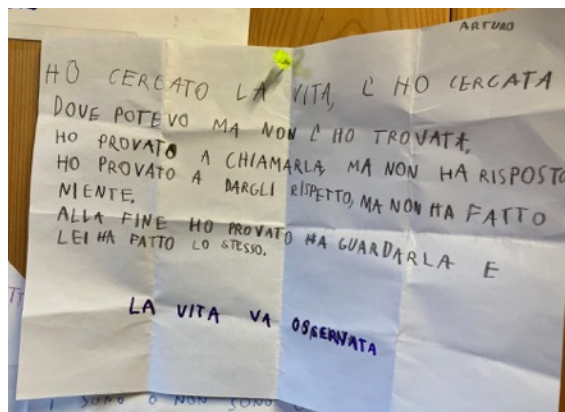 ARTURO
HO CERCATO LA VITA, L'HO CERCATA
DOVE POTEVO MA NON L'HO TROVATA,
HO PROVATO A CHIAMARLA, MA NON HA RISPOSTO
HO PROVATO A DARGLI RISPETTO, MA NON HA FATTO
NIENTE.
ALLA FINE HO PROVATO HA GUARDARLA E
LEI HA FATTO LO STESSO.
LA VITA VA OSSERVATA
I SONO O NON SONO